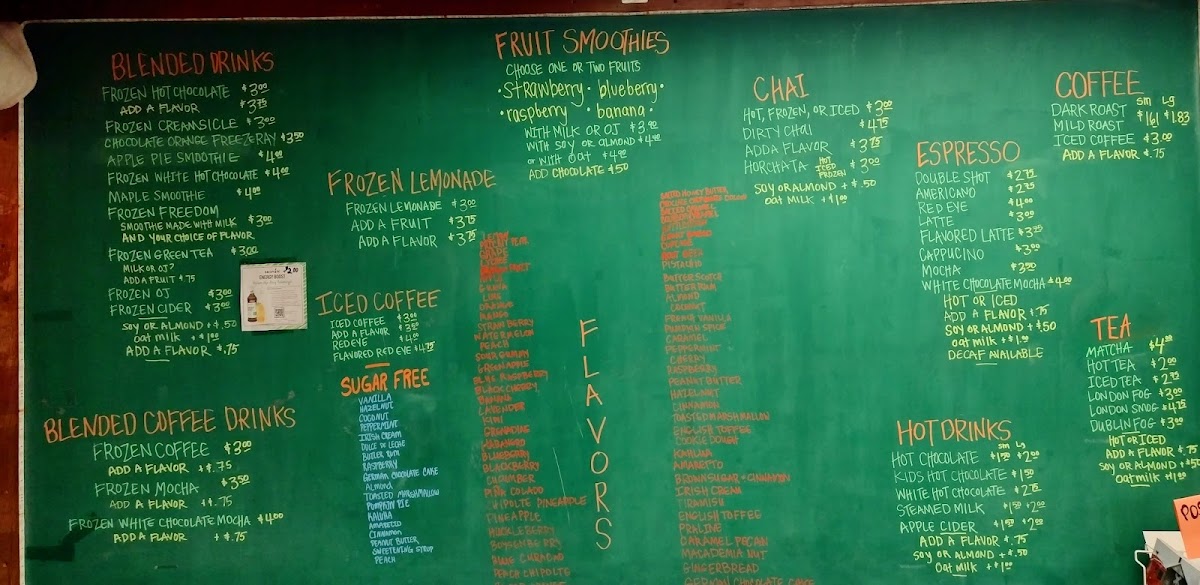 BLENDED DRINKS
FROZEN HOT CHOCOLATE $3.00
ADD A FLAVOR $3.75
FROZEN CREAMSICLE $3.00
CHOCOLATE ORANGE FREEZERAY $3.50
APPLE PIE SMOOTHIE $4.00
FROZEN WHITE HOT CHOCOLATE $4.00
MAPLE SMOOTHIE $4.00
FROZEN FREEDOM
SMOOTHIE MADE WITH MILK $3.00
AND YOUR CHOICE OF FLAVOR
FROZEN GREEN TEA $3.00
MILK OR OJ?
ADD A FRUIT +.75
FROZEN OJ $3.00
FROZEN CIDER $3.00
SOY OR ALMOND +$.50
oat milk +$1.00
ADD A FLAVOR $.75
$2.00
ENERGY BOOST
BLENDED COFFEE DRINKS
FROZEN COFFEE $3.00
ADD A FLAVOR +$.75
FROZEN MOCHA $3.50
ADD A FLAVOR +$.75
FROZEN WHITE CHOCOLATE MOCHA $4.00
ADD A FLAVOR +$.75
FROZEN LEMONADE
FROZEN LEMONADE $3.00
ADD A FRUIT $3.75
ADD A FLAVOR $3.75
ICED COFFEE
ICED COFFEE $3.00
ADD A FLAVOR
RED EYE
FLAVORED RED EYE $4.75
SUGAR FREE
VANILLA
HAZELNUT
COCONUT
PEPPERMINT
IRISH CREAM
DULCE DE LECHE
BUTTER RUM
RASPBERRY
GERMAN CHOCOLATE CAKE
Almond
TOASTED MARSHMALLOW
PUMPKIN PIE
KALUHA
AMARETTO
CINNAMON
PEANUT BUTTER
SWEETENING SYRUP
PEACH
FRUIT SMOOTHIES
CHOOSE ONE OR TWO FRUITS
• Strawberry • blueberry •
• raspberry • banana •
WITH MILK OR OJ $3.00
WITH SOY OR ALMOND $4.00
or WITH OAT $4.00
ADD CHOCOLATE $.50
GRAPE
GUAVA
LIME
ORANGE
MANGO
STRAWBERRY
WATERMELON
PEACH
GREEN APPLE
BLUE RASPBERRY
BLACK CHERRY
BANANA
LAVENDER
KIWI
GRENADINE
HABANERO
BLUEBERRY
BLACKBERRY
CUCUMBER
PINA COLADO
CHIPOLTE PINEAPPLE
PINEAPPLE
HUCKLEBERRY
BOYSENBERRY
BLUE CURACAO
PEACH CHIPOLTE
FLAVORS
SALTED HONEY BUTTER
CUPCAKE
ROOT BEER
PISTACHIO
BUTTERSCOTCH
BUTTER RUM
ALMOND
COCONUT
FRENCH VANILLA
PUMPKIN SPICE
CARAMEL
PEPPERMINT
CHERRY
RASPBERRY
PEANUT BUTTER
HAZELNUT
CINNAMON
TOASTED MARSHMALLOW
ENGLISH TOFFEE
COOKIE DOUGH
KAHLUA
AMARETTO
BROWN SUGAR + CINNAMON
IRISH CREAM
TIRAMISU
ENGLISH TOFFEE
PRALINE
CARAMEL PECAN
MACADEMIA NUT
GINGERBREAD
GERMAN CHOCOLATE CAKE
CHAI
HOT, FROZEN, OR ICED $3.00
DIRTY CHAI $4.75
ADD A FLAVOR $3.75
HORCHATA HOT ICED FROZEN $3.00
SOY OR ALMOND + $.50
oat MILK + $1.00
COFFEE
SM LG
DARK ROAST $1.61 $1.83
MILD ROAST
ICED COFFEE $3.00
ADD A FLAVOR $.75
ESPRESSO
DOUBLE SHOT $2.75
AMERICANO $2.75
RED EYE $4.00
LATTE $3.00
FLAVORED LATTE $3.75
CAPPUCINO $3.00
MOCHA $3.50
WHITE CHOCOLATE MOCHA $4.00
HOT OR ICED
ADD A FLAVOR $.75
SOY OR ALMOND +$.50
oat milk +$1.00
DECAF AVAILABLE
HOT DRINKS
SM LG
HOT CHOCOLATE $1.50 $2.00
KIDS HOT CHOCOLATE $1.50
WHITE HOT CHOCOLATE $2.75
STEAMED MILK $1.50 $2.00
APPLE CIDER $1.50 $2.00
ADD A FLAVOR $.75
SOY OR ALMOND +$.50
Oat milk +$1.00
TEA
MATCHA
HOT TEA $2.00
ICED TEA
LONDON FOG $3.00
LONDON SMOG $4.75
DUBLIN FOG $3.00
HOT OR ICED
ADD A FLAVOR $.75
SOY OR ALMOND
Oat milk +$1.00
POS